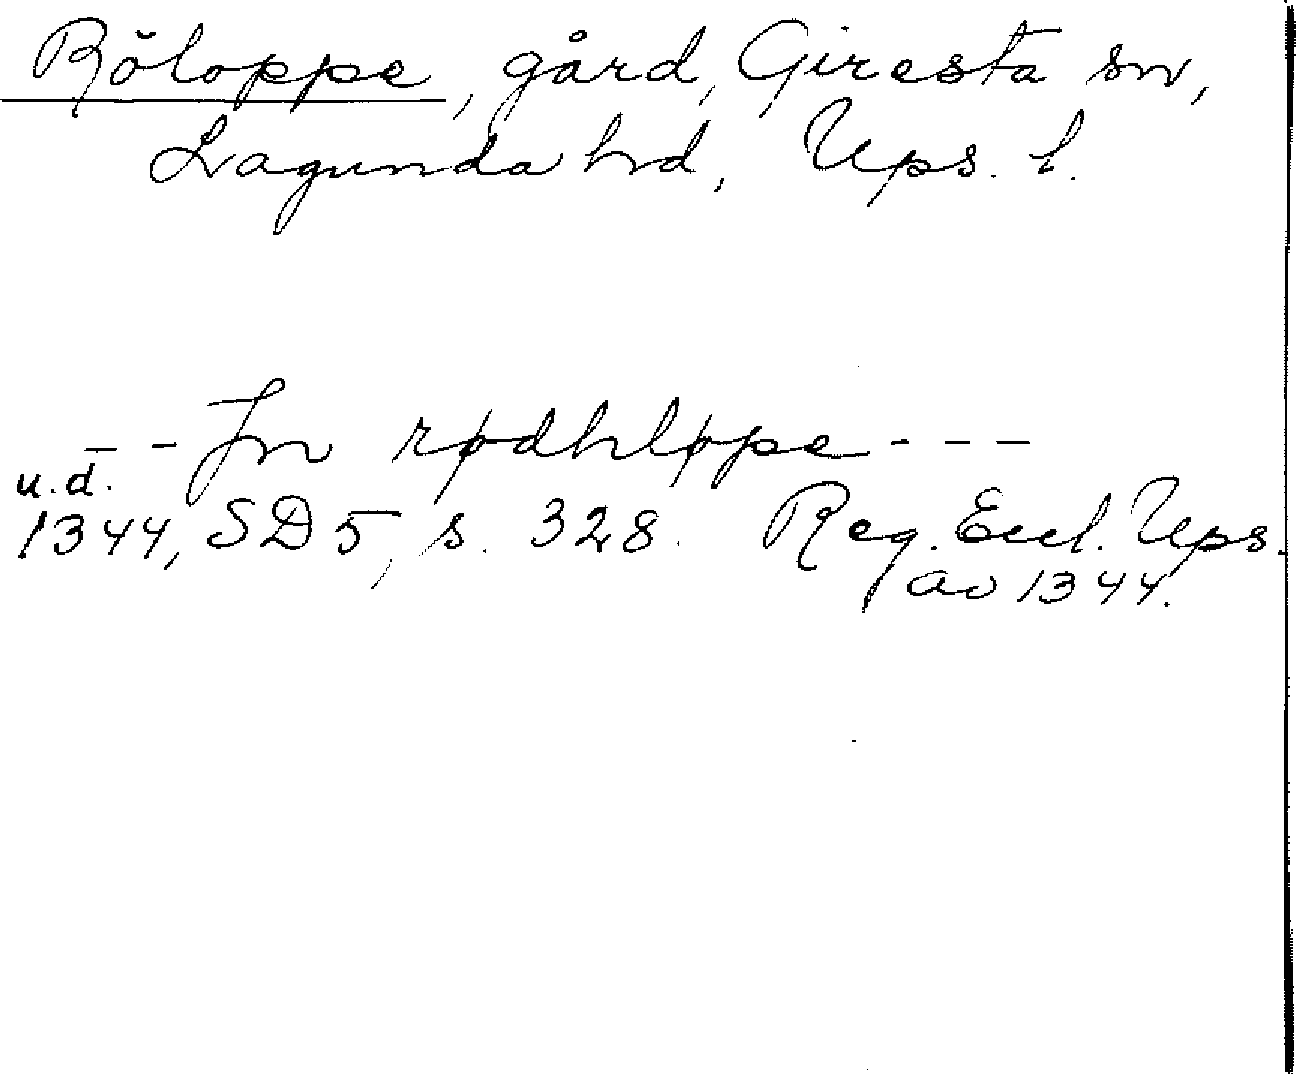 Röloppe, gård, Giresta sn,
Lagunda hd, Ups. l.
- - Jn rødhløpe - - -
u.d.
1344, SD 5, s. 328. Reg. Eccl. Ups.
av 1344.